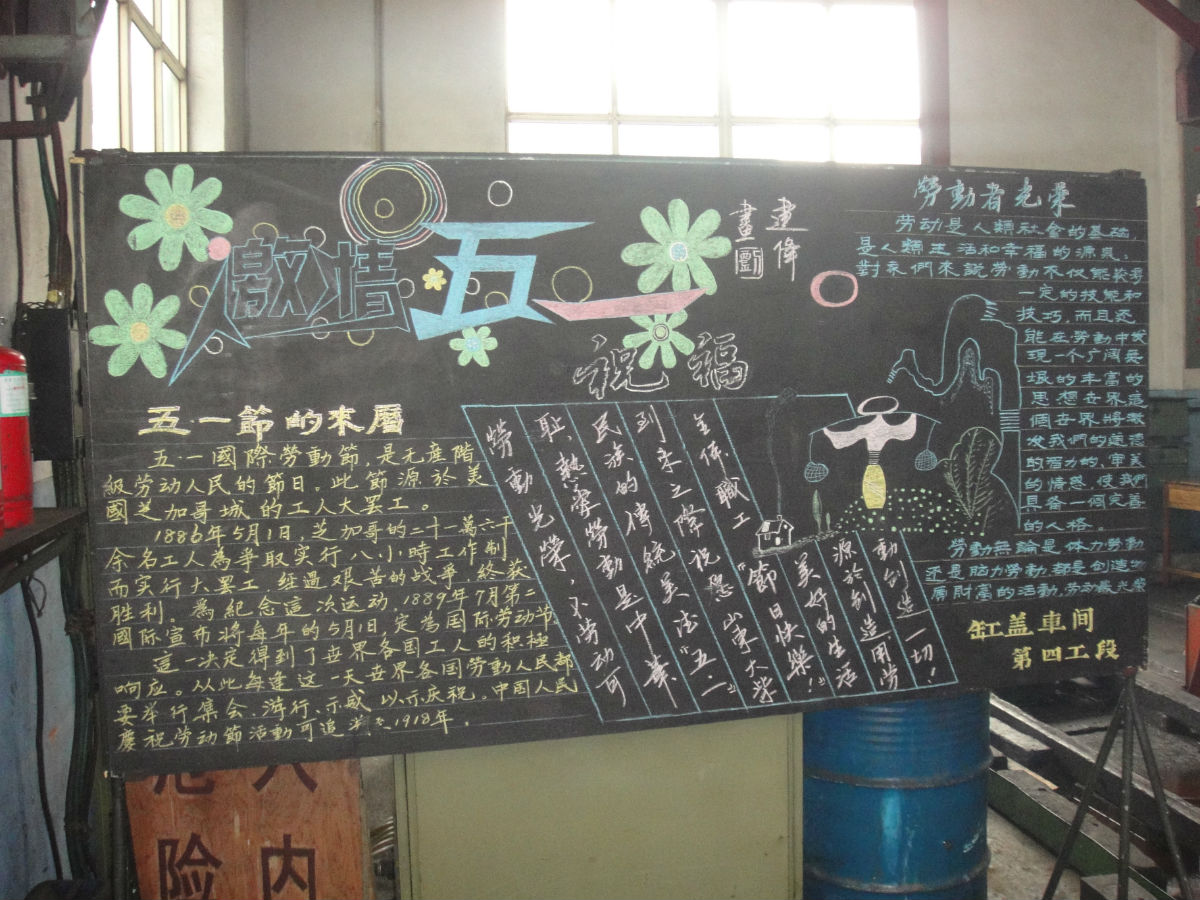 激情五一
建偉
畫
五·一節的來曆
五·一國際勞動節,是无産階
級劳动人民的節日。此節源於美
國芝加哥城的工人大罢工。
1886年5月1日,芝加哥的二十一萬六千
余名工人為爭取实行八小時工作制
而实行大罢工,經過艰苦的战爭,終获
胜利。為紀念這次运动,1889年7月第二
國际宣布將每年的5月1日定為国际劳动节
這一决定得到了世界各国工人的积極
响应。从此每逢这一天世界各国勞動人民都
要举行集会、游行、示威以示庆祝。中國人民
慶祝劳动節活動可追 1918年。
祝福
全体職工
到来之際祝愿山東大柴
民族的傳統美 "五·一"
耻,熱 勞動是中華
勞動光榮、 劳动可
"節日快樂!"
美好的生活
源於創造用勞
動創造一切!
勞動者光榮
劳动是人類社会的基础
是人類生活和幸福的源泉,
對来們來說勞動不仅能获得
一定的技能和
技巧,而且还
能在勞動中发
現一个广闊
的丰富的
思想世界這
個世界將
发我們的道德
的 力的、审美
的情感,使我們
具备一個完善
的人格。
勞動無論是体力勞動
还是脑力勞動,都是创造物
質財富的活動,劳动最光榮
缸盖车间
第四工段
险 内